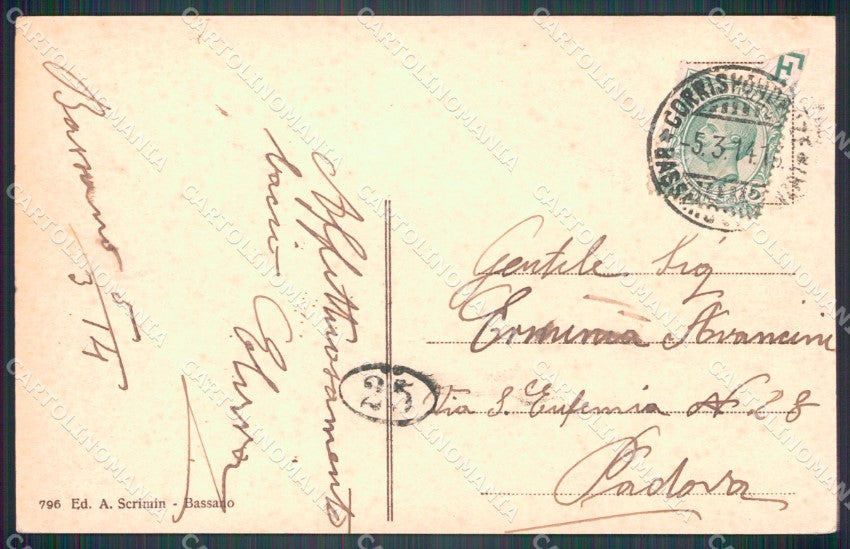 Bassano 5
3/14
Affettuosamente
baci
CORRISPONDENZE
-5.3.14.18
BASSANO
25
Gentile Sig
Erminia Avancini
Via S. Eufemia N. 28
Padova
796 Ed. A. Scrimin - Bassano
CARTOLINOMANIA